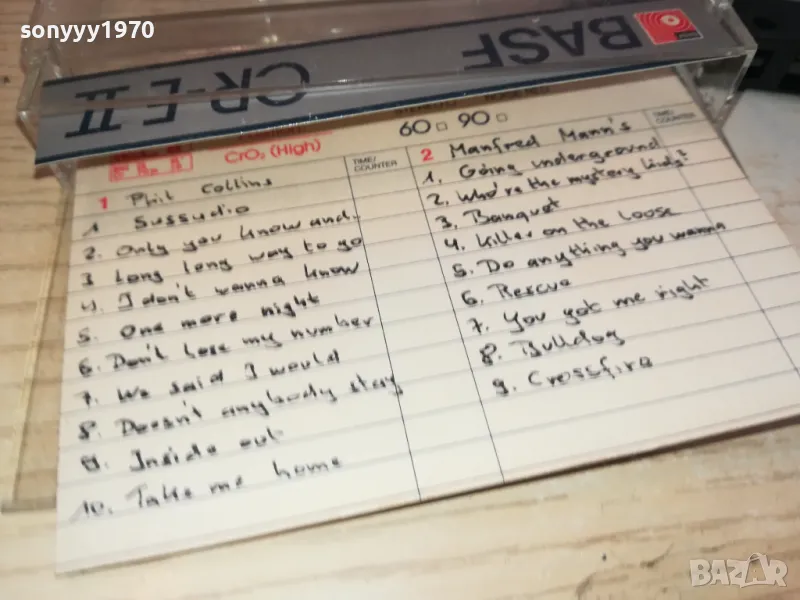 sonyyy1970
BASF
CR-E II
60 90
CrO₂ (High)
TIME/
COUNTER
1 Phil Collins
1 Sussudio
2. Only you know and
3 Long long way to go
4. I don't wanna know
5. One more night
6. Don't lose my number
7. We said I would
8. Doesn't anybody stay
9. Inside out
10. Take me home
TIME/
COUNTER
2 Manfred Mann's
1. Going underground
2. Who're the mystery
3. Banquet
4. Killer on the loose
5. Do anything you wanna
6. Rescue
7. You got me right
8. Bulldog
9. Crossfire
BAZAR